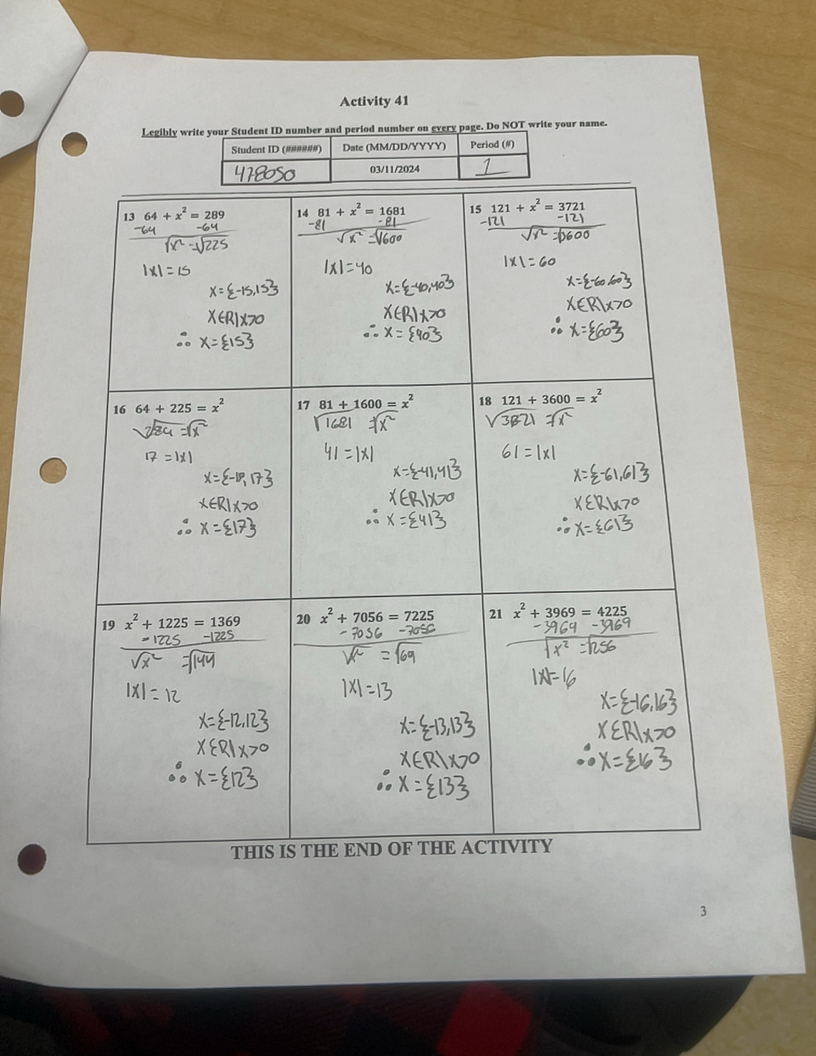 Activity 41
Legibly write your Student ID number and period number on every page. Do NOT write your name.
Student ID (######) Date (MM/DD/YYYY) Period (#)
478050 03/11/2024 1
13 64 + x² = 289
-64 -64
√x² = √225
|x| = 15
x = {-15, 15}
x ∈ R | x > 0
∴ x = {15}
14 81 + x² = 1681
-81 -81
√x² = √1600
|x| = 40
x = {-40, 40}
x ∈ R | x > 0
∴ x = {40}
15 121 + x² = 3721
-121 -121
√x² = √3600
|x| = 60
x = {-60, 60}
x ∈ R | x > 0
∴ x = {60}
16 64 + 225 = x²
√289 = √x²
17 = |x|
x = {-17, 17}
x ∈ R | x > 0
∴ x = {17}
17 81 + 1600 = x²
√1681 = √x²
41 = |x|
x = {-41, 41}
x ∈ R | x > 0
∴ x = {41}
18 121 + 3600 = x²
= √x²
61 = |x|
x = {-61, 61}
x ∈ R | x > 0
∴ x = {61}
19 x² + 1225 = 1369
-1225 -1225
√x² = √144
|x| = 12
x = {-12, 12}
x ∈ R | x > 0
∴ x = {12}
20 x² + 7056 = 7225
-7056 -7056
√x² = √169
|x| = 13
x = {-13, 13}
x ∈ R | x > 0
∴ x = {13}
21 x² + 3969 = 4225
-3969 -3969
√x² = √256
|x| = 16
x = {-16, 16}
x ∈ R | x > 0
∴ x = {16}
THIS IS THE END OF THE ACTIVITY
3